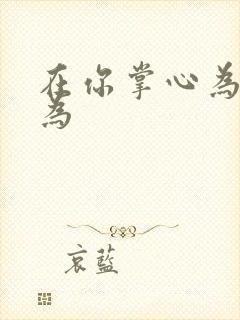 在你掌心為
為
哀藍